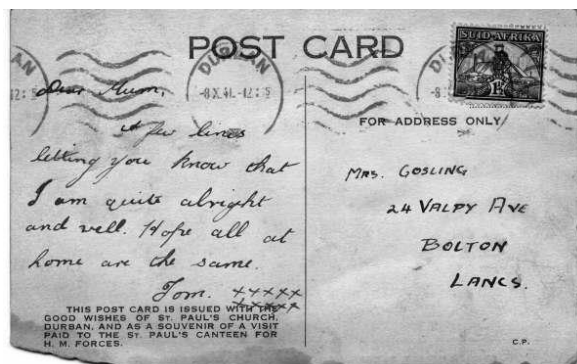 POST CARD
SUID-AFRIKA
DURBAN
-8 X 41. -12:
Dear Mum,
A few lines
letting you know that
I am quite alright
and well. Hope all at
home are the same.
Tom. xxxxx
xxxxxx
THIS POST CARD IS ISSUED WITH THE
GOOD WISHES OF ST. PAUL'S CHURCH,
DURBAN, AND AS A SOUVENIR OF A VISIT
PAID TO THE ST. PAUL'S CANTEEN FOR
H. M. FORCES.
FOR ADDRESS ONLY
MRS. GOSLING
24 VALPY AVE
BOLTON
LANCS.
C.P.